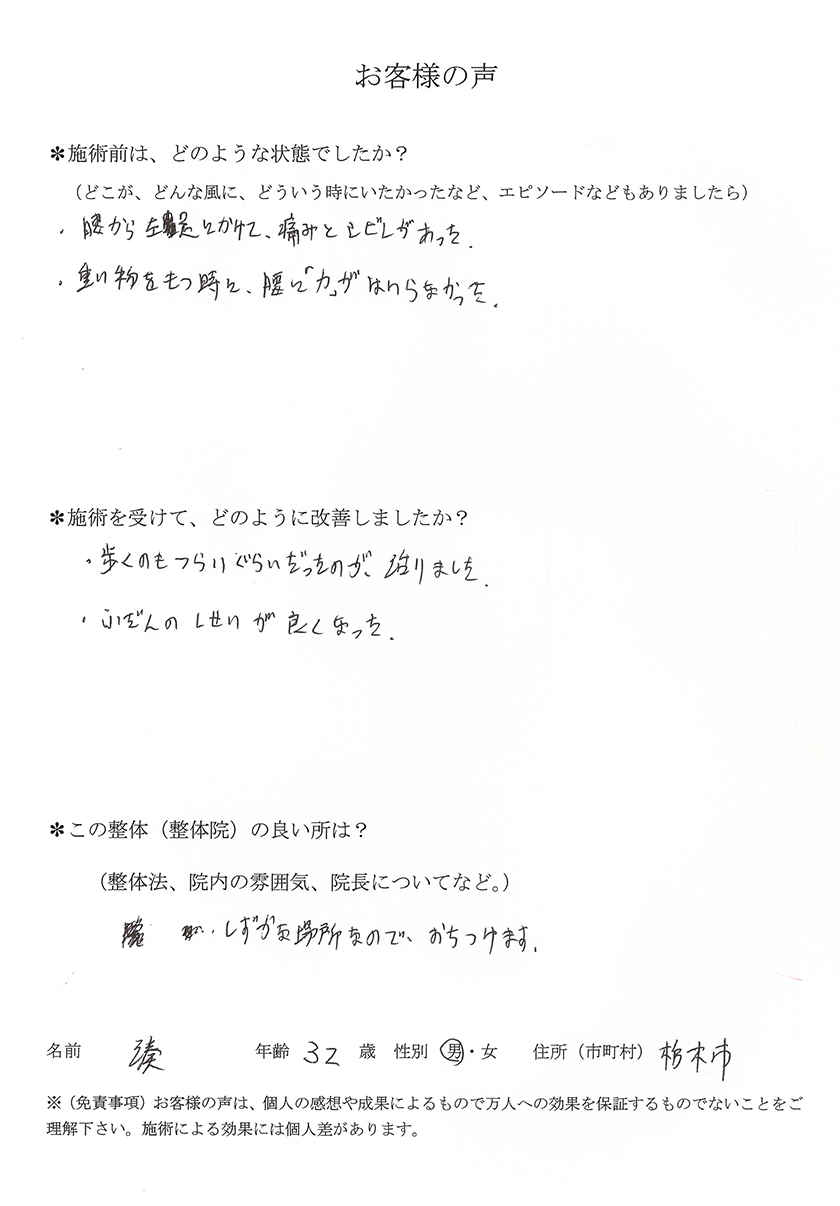 お客様の声
✻施術前は、どのような状態でしたか？
（どこが、どんな風に、どういう時にいたかったなど、エピソードなどもありましたら）
・腰から左足にかけて、痛みとシビレがあった.
・重い物をもつ時に、腰に「力」がはいらなかった.
✻施術を受けて、どのように改善しましたか？
・歩くのもつらいぐらいだったのが、治りました.
・ふだんのしせいが良くなった.
✻この整体（整体院）の良い所は？
（整体法、院内の雰囲気、院長についてなど。）
・しずかな場所なので、おちつけます.
名前 湊 年齢 32 歳 性別 男・女 住所（市町村） 栃木市
※（免責事項）お客様の声は、個人の感想や成果によるもので万人への効果を保証するものでないことをご
理解下さい。施術による効果には個人差があります。